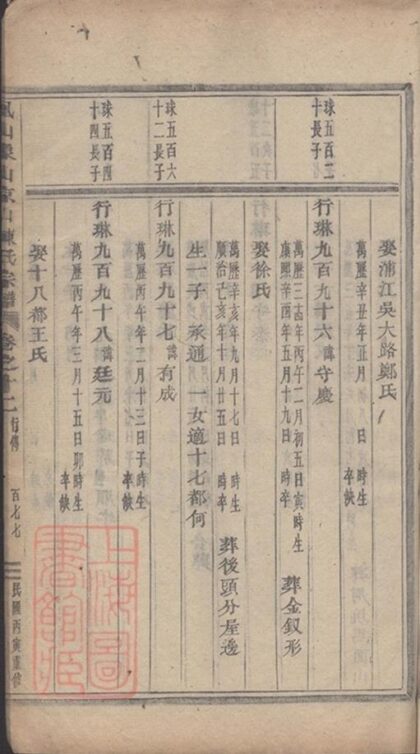 娶浦江吳大路鄭氏
萬歷辛丑年正月 日 時生
卒缺
珠五百二
十長子
行琳九百九十六諱守慶
萬歷三 年丙午二月初五日寅時生
康熙辛酉年五月十九日 時卒
葬金釵形
娶徐氏
萬歷辛亥年九月十七日 時生
順治己亥年十月廿五日 時卒
葬後頭分屋邊
生一子 承通 一女適十七都何
珠五百六
十二長子
行琳九百九十七諱有成
萬歷丙午年三月十三日子時生
卒缺
珠五百四
十四長子
行琳九百九十八諱廷元
萬歷丙午年三月十五日卯時生
卒缺
娶十八都王氏
山陳氏宗譜 卷之十二 行傳 百七七 民國丙寅重修
上海圖
書館藏